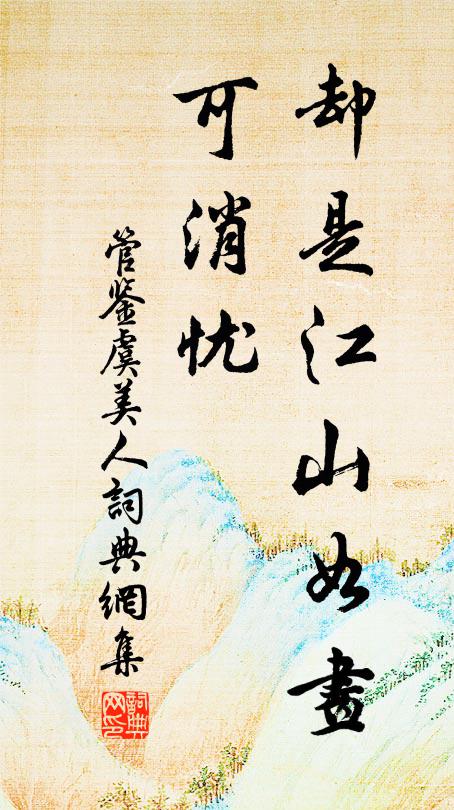 却是江山如畫
可消忧
管鉴虞美人詞典網集
詞典
网印